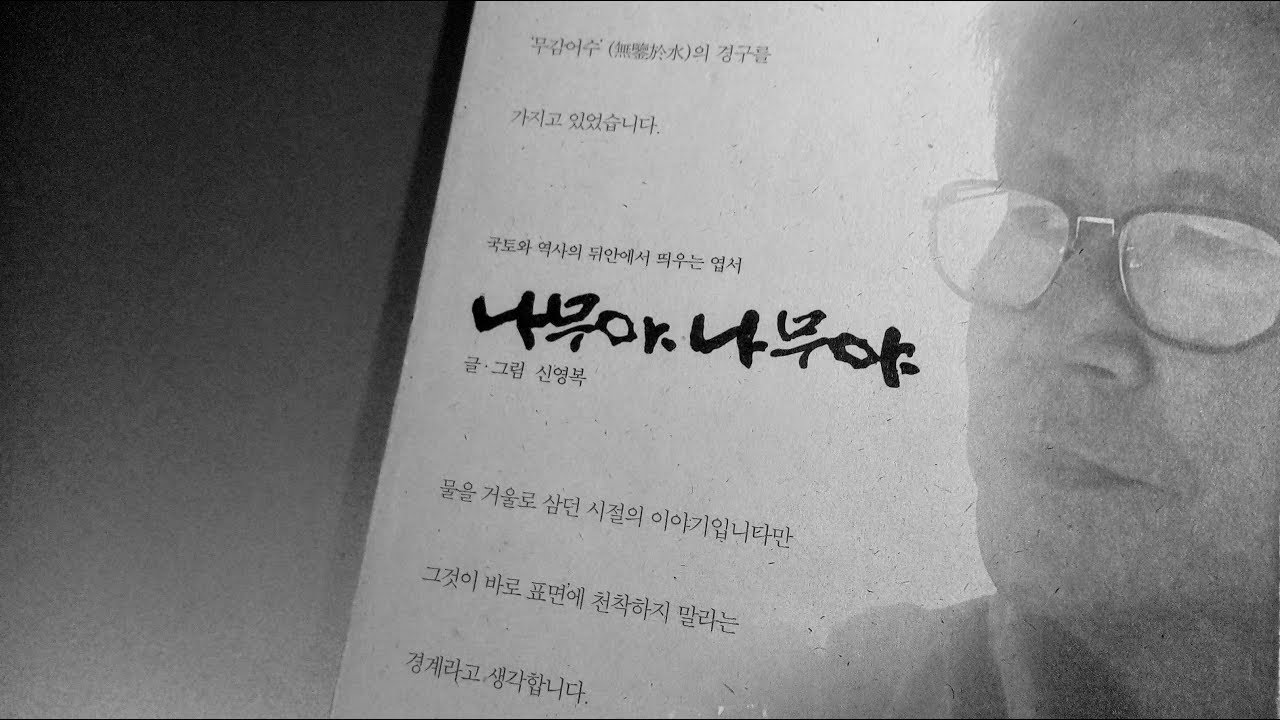 '무감어수' (無鑒於水)의 경구를
가지고 있었습니다.
국토와 역사의 뒤안에서 띄우는 엽서
나무야 나무야
글·그림 신영복
물을 거울로 삼던 시절의 이야기입니타만
그것이 바로 표면에 천착하지 말라는
경계라고 생각합니다.